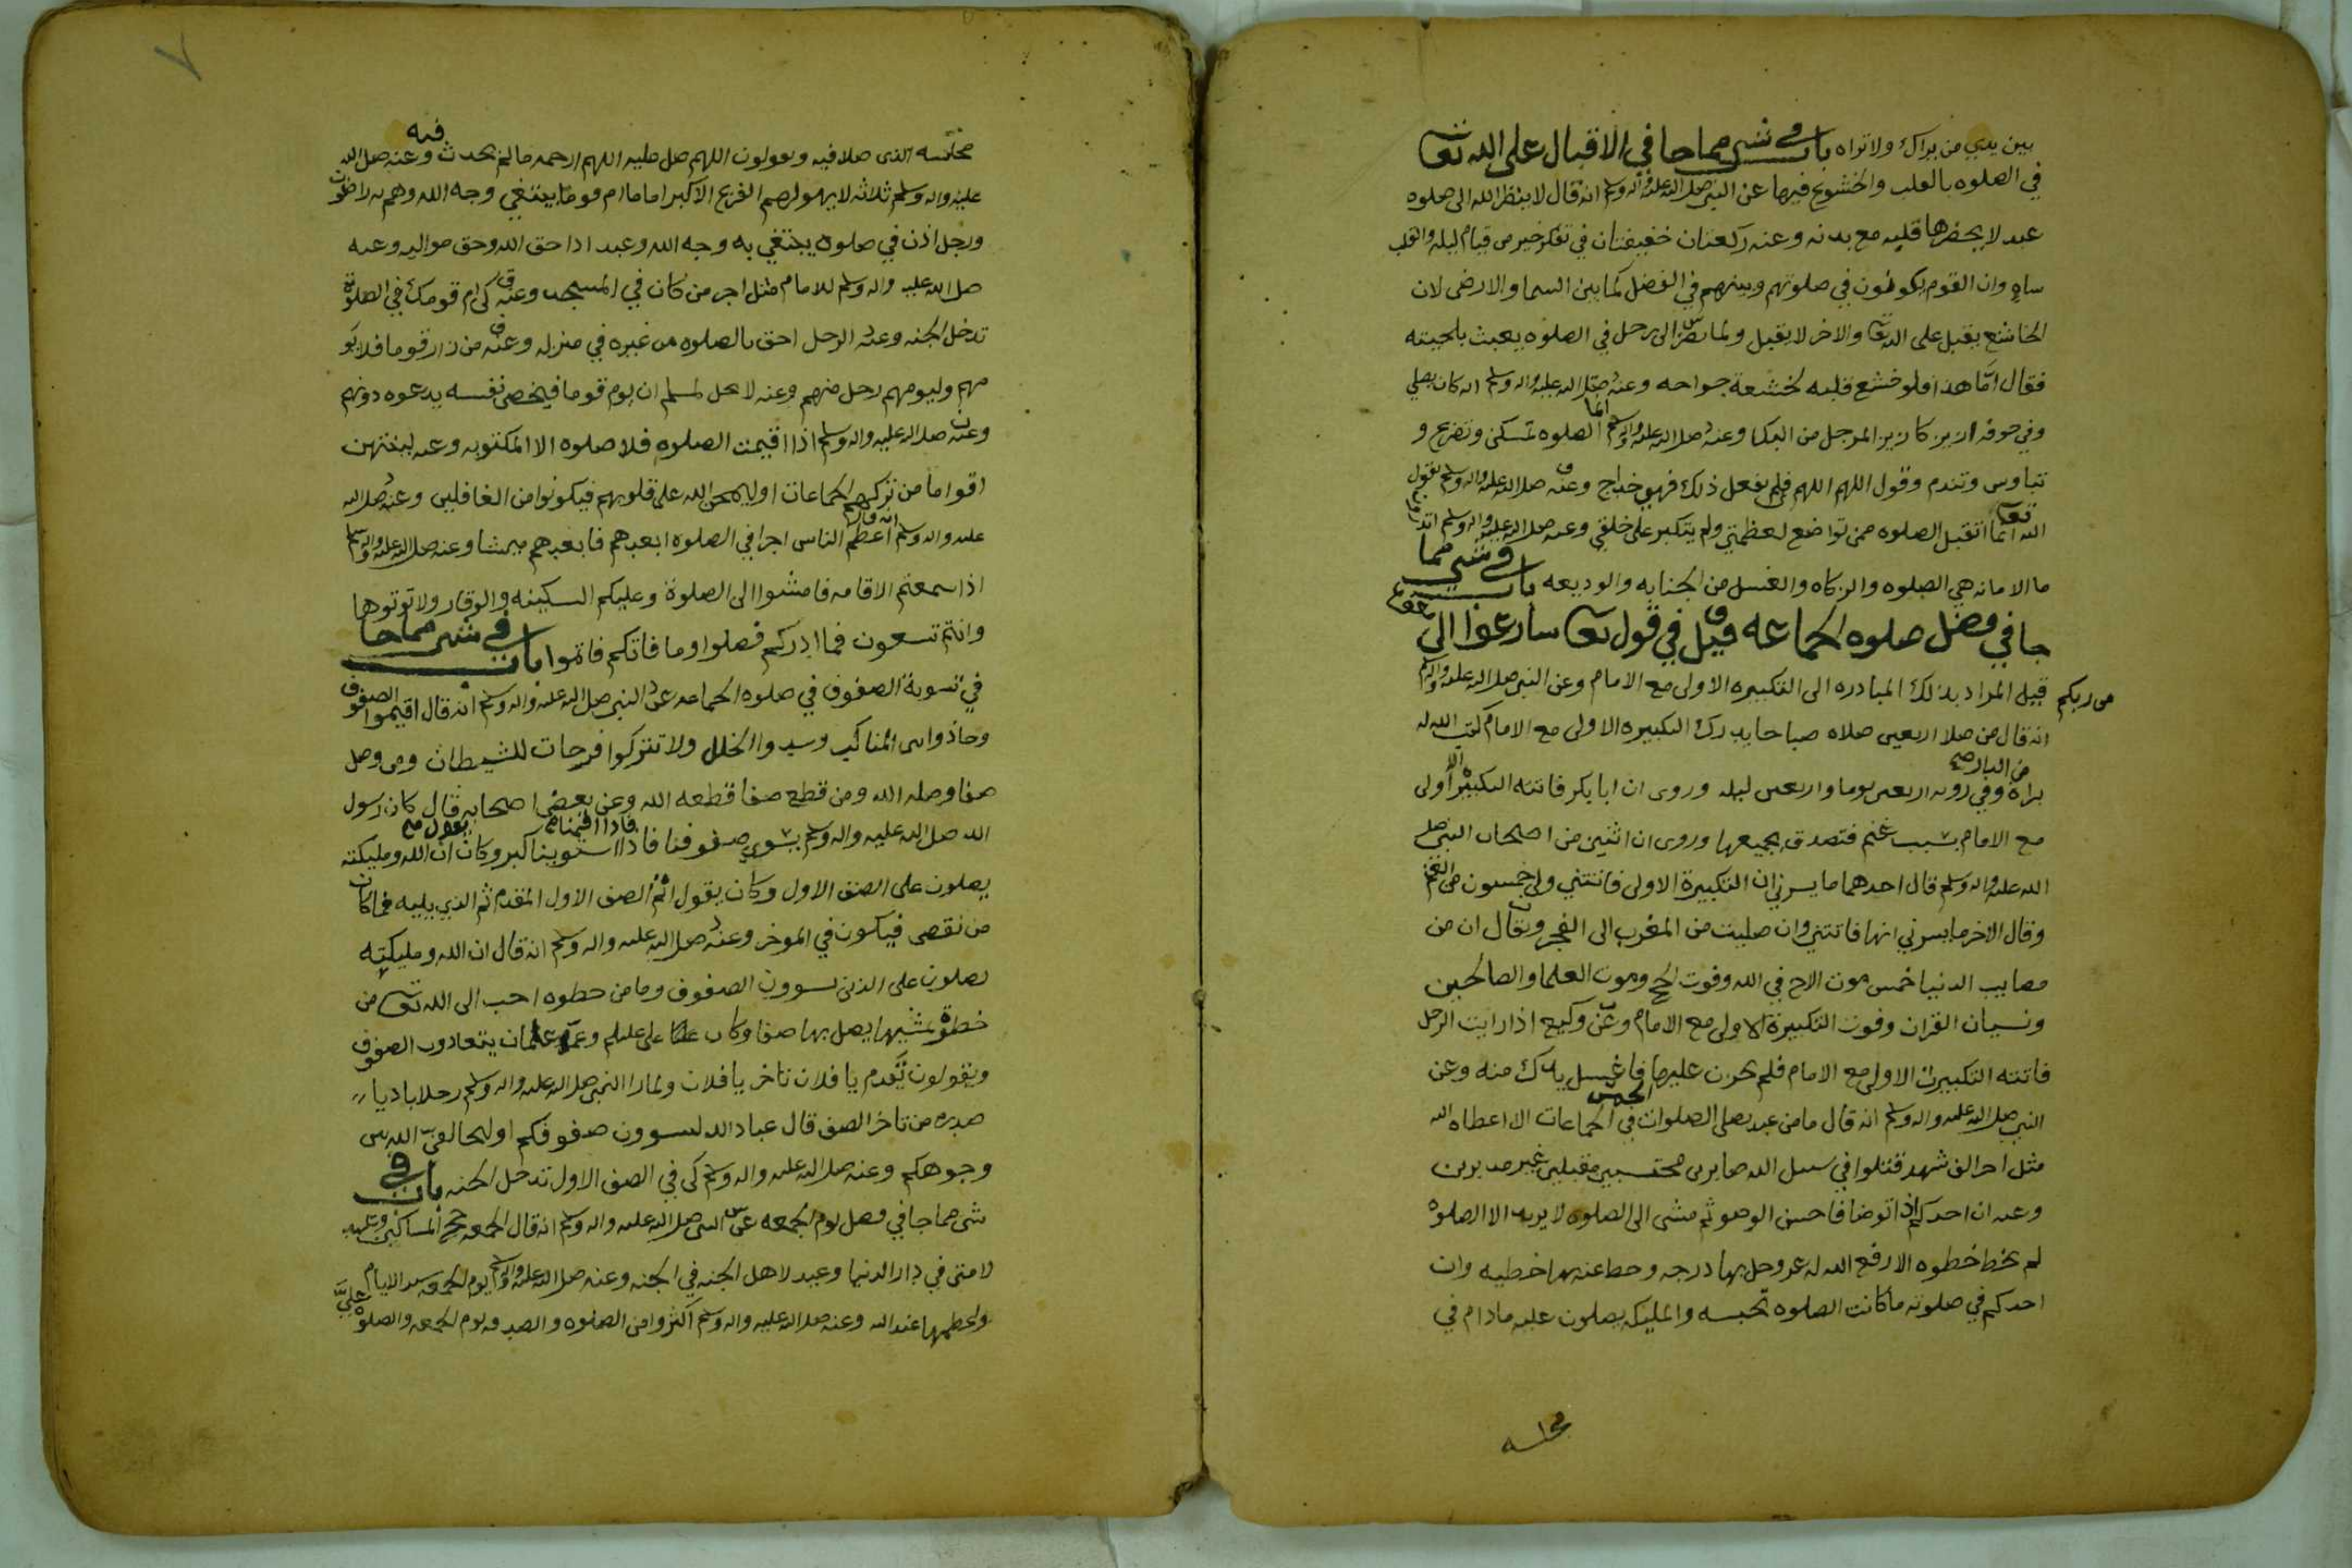 بين يدي من يراك ولا تراه باب في شي مما جا في الاقبال على الله تعا
في الصلوه بالقلب والخشوع فيها عن النبي صلى الله عليه واله وسلم انه قال لا ينظر الله الى صلوه
عبد لا يحضرها قلبه مع بدنه وعنه ركعتان خفيفتان في تفكر خير من قيام ليله والقلب
ساه وان القوم يكونون في صلوتهم وبينهم في الفضل كما بين السما والارض لان
الخاشع يقبل على الله تعا والاخر لا يقبل ولما نظر الى رجل في الصلوه يعبث بلحيته
فقال اما هذا فلو خشع قلبه لخشعة جوارحه وعنه صلى الله عليه واله وسلم انه كان يصلي
وفي جوفه ازيز كازيز المرجل من البكا وعنه صلى الله عليه واله وسلم انما الصلوه تمسكن وتضرع و
تباوس وتندم وقول اللهم اللهم فلم يفعل ذلك فهي خداج وعنه صلى الله عليه واله وسلم يقول
الله تعا انما اتقبل الصلوه ممن تواضع لعظمتي ولم يتكبر على خلقي وعنه صلى الله عليه واله وسلم
ما الامانه هي الصلوه والزكاه والغسل من الجنابه والوديعه باب في شي مما
جا في فضل صلوه الجماعه قيل في قول تعا سارعوا الى
من ربكم قيل المراد بذلك المبادره الى التكبيره الاولى مع الامام وعن النبي صلى الله عليه واله وسلم
انه قال من صلا اربعين صلاه صباحا يدرك التكبيره الاولى مع الامام كتب الله له
براة من النار وفي رويه اربعين يوما واربعين ليله وروي ان ابا بكر فاتته التكبيره الاولى
مع الامام بسبب غنم فتصدق بجميعها وروى ان اثنين من اصحاب النبي صلى
الله عليه واله وسلم قال احدهما ما يسرني ان التكبيرة الاولى فاتتني ولي خمسون من الغنم
وقال الاخر ما يسرني انها فاتتني وان صليت من المغرب الى الفجر ويقال ان من
مصايب الدنيا خمس موت الاخ في الله وفوت الحج وموت العلما والصالحين
ونسيان القران وفوت التكبيرة الاولى مع الامام وعن وكيع اذا رايت الرجل
فاتته التكبيرت الاولى مع الامام فلم يحزن عليها فاغسل يدك منه وعن
النبي صلى الله عليه واله وسلم انه قال ما من عبد يصلي الصلوات الخمس في الجماعات الا اعطاه الله
مثل اجر الف شهيد قتلوا في سبيل الله صابرين محتسبين مقبلين غير مدبرين
وعنه ان احدكم اذا توضا فاحسن الوضو ثم مشى الى الصلوه لا يريد الا الصلوة
لم يخط خطوه الا رفع الله له عز وجل بها درجه وحط عنه بها خطيه وان
احدكم في صلوته ما كانت الصلوه تحبسه والمليكه يصلون عليه ما دام في
مجلسه
٧
مجلسه الذي صلا فيه ويقولون اللهم صل عليه اللهم ارحمه ما لم يحدث فيه وعنه صلى الله
عليه واله وسلم ثلاثه لا يهولهم الفزع الاكبر اماما ام قوما يبتغي وجه الله وهم به راضون
ورجل اذن في صلوه يبتغي به وجه الله وعبد ادا حق الله وحق مواليه وعنه
صلى الله عليه واله وسلم للامام مثل اجر من كان في المسجد وعنه كن ام قومك في الصلوة
تدخل الجنه وعنه الرجل احق بالصلوه من غيره في منزله وعنه من زار قوما فلا يو
مهم وليومهم رجل منهم وعنه لا يحل لمسلم ان يوم قوما فيخص نفسه بدعوه دونهم
وعنه صلى الله عليه واله وسلم اذا اقيمت الصلوه فلا صلوه الا المكتوبه وعنه لينتهين
اقواما من تركهم الجماعات او ليختمن الله على قلوبهم فيكونوا من الغافلين وعنه صلى الله
عليه واله وسلم انه قال اعظم الناس اجرا في الصلوه ابعدهم فابعدهم ممشا وعنه صلى الله عليه واله وسلم
اذا سمعتم الاقامه فامشوا الى الصلوة وعليكم السكينه والوقار ولا توتوها
وانتم تسعون فما ادركتم فصلوا وما فاتكم فاتموا باب في شي مما جا
في تسوية الصفوف في صلوه الجماعه عن النبي صلى الله عليه واله وسلم انه قال اقيموا الصفوف
وحاذوا بين المناكب وسدوا الخلل ولا تتركوا فرجات للشيطان ومن وصل
صفا وصله الله ومن قطع صفا قطعه الله وعن بعض اصحابه قال كان رسول
الله صلى الله عليه واله وسلم يسوي صفوفنا فاذا استوينا كبر وكان يقول ان الله ومليكته
يصلون على الصف الاول وكان يقول اتموا الصف الاول المقدم ثم الذي يليه فما كان
من نقص فيكون في الموخر وعنه صلى الله عليه واله وسلم انه قال ان الله ومليكته
يصلون على الذين يسوون الصفوف وما من خطوه احب الى الله تعا من
خطوة يمشيها يصل بها صفا وكان علي وعثمان يتعاهدون الصفوف
ويقولون تقدم يا فلان تاخر يا فلان ولما را النبي صلى الله عليه واله وسلم رجلا باديا
صدره من تاخر الصف قال عباد الله لتسوون صفوفكم او ليخالفن الله بين
وجوهكم وعنه صلى الله عليه واله وسلم كن في الصف الاول تدخل الجنه باب في
شي مما جا في فضل يوم الجمعه عن النبي صلى الله عليه واله وسلم انه قال الجمعه حج المساكين وعيد
لامتي في دار الدنيا وعيد لاهل الجنه في الجنه وعنه صلى الله عليه واله وسلم يوم الجمعه سيد الايام
واعظمها عند الله وعنه صلى الله عليه واله وسلم اكثروا من الصلوه والصدقه يوم الجمعه والصلوة علي